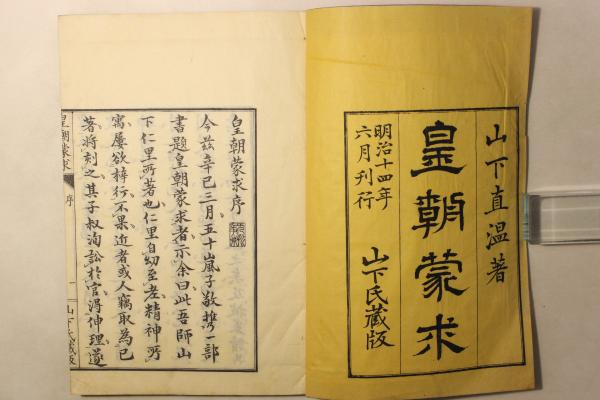 山下直温著
皇朝蒙求
明治十四年
六月刊行
山下氏蔵版
皇朝蒙求序
今玆辛巳三月五十嵐子敬携一部
書題皇朝蒙求者示余曰此吾師山
下仁里所著也仁里自幼至老精神所
寓屢欲梓行不果近者或人竊取為己
著将刻之其子叔洵訟於官得伸理遂
皇朝蒙求
序
一
山下氏蔵版